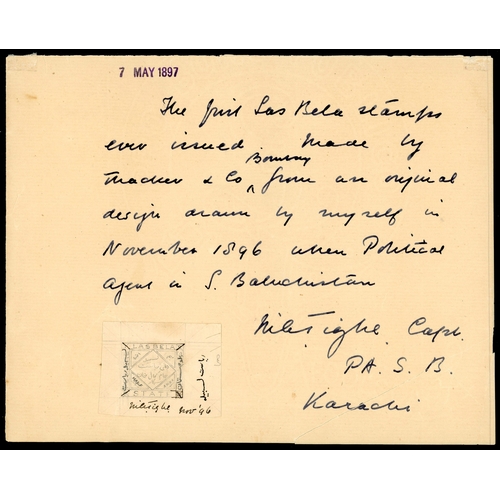 7 MAY 1897
The first Las Bela stamps
ever issued. Made by
Thacker & Co Bombay from an original
design drawn by myself in
November 1896 when Political
Agent in S. Baluchistan
Capt.
P.A. S. B.
Karachi
LAS BELA
STATE
Nov '96